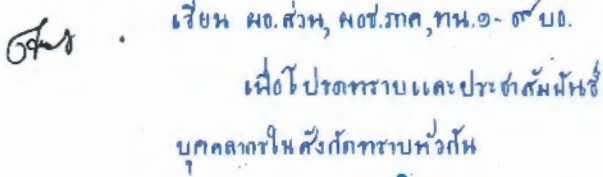 เรียน ผอ.ส่วน, ผอช.ภาค, ทน.๑-๙ บอ.
เพื่อโปรดทราบและประชาสัมพันธ์
บุคคลากรในสังกัดทราบทั่วกัน